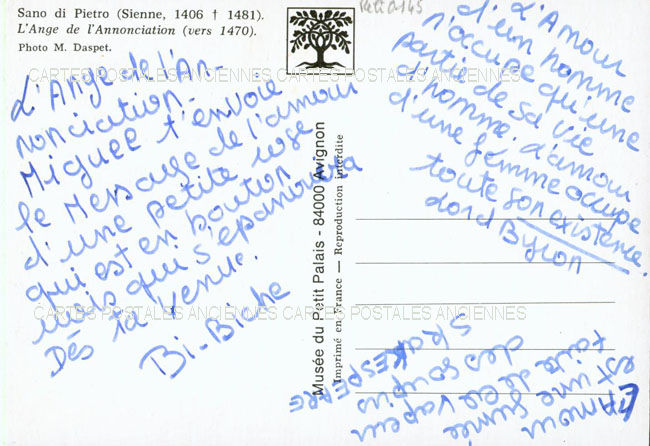 Sano di Pietro (Sienne, 1406 † 1481).
L'Ange de l'Annonciation (vers 1470).
Photo M. Daspet.
CARTES POSTALES ANCIENNES CARTES POSTALES ANCIENNES
L'Ange de l'An-
nonciation.
Miguel t'envoie
le Message de l'amour
d'une petite rose
qui est en bouton
mais qui s'épanouira
Dès ta venue.
Bi-Biche
Musée du Petit Palais - 84000 Avignon
Imprimé en France — Reproduction interdite
L'Amour
d'un homme
n'occupe qu'une
partie de sa vie
d'homme. L'amour
d'une femme occupe
toute son existence.
Lord Byron
CARTES POSTALES ANCIENNES CARTES POSTALES ANCIENNES
L'Amour
est une
fumée
faite de la vapeur
des soupirs
SHAKESPEARE